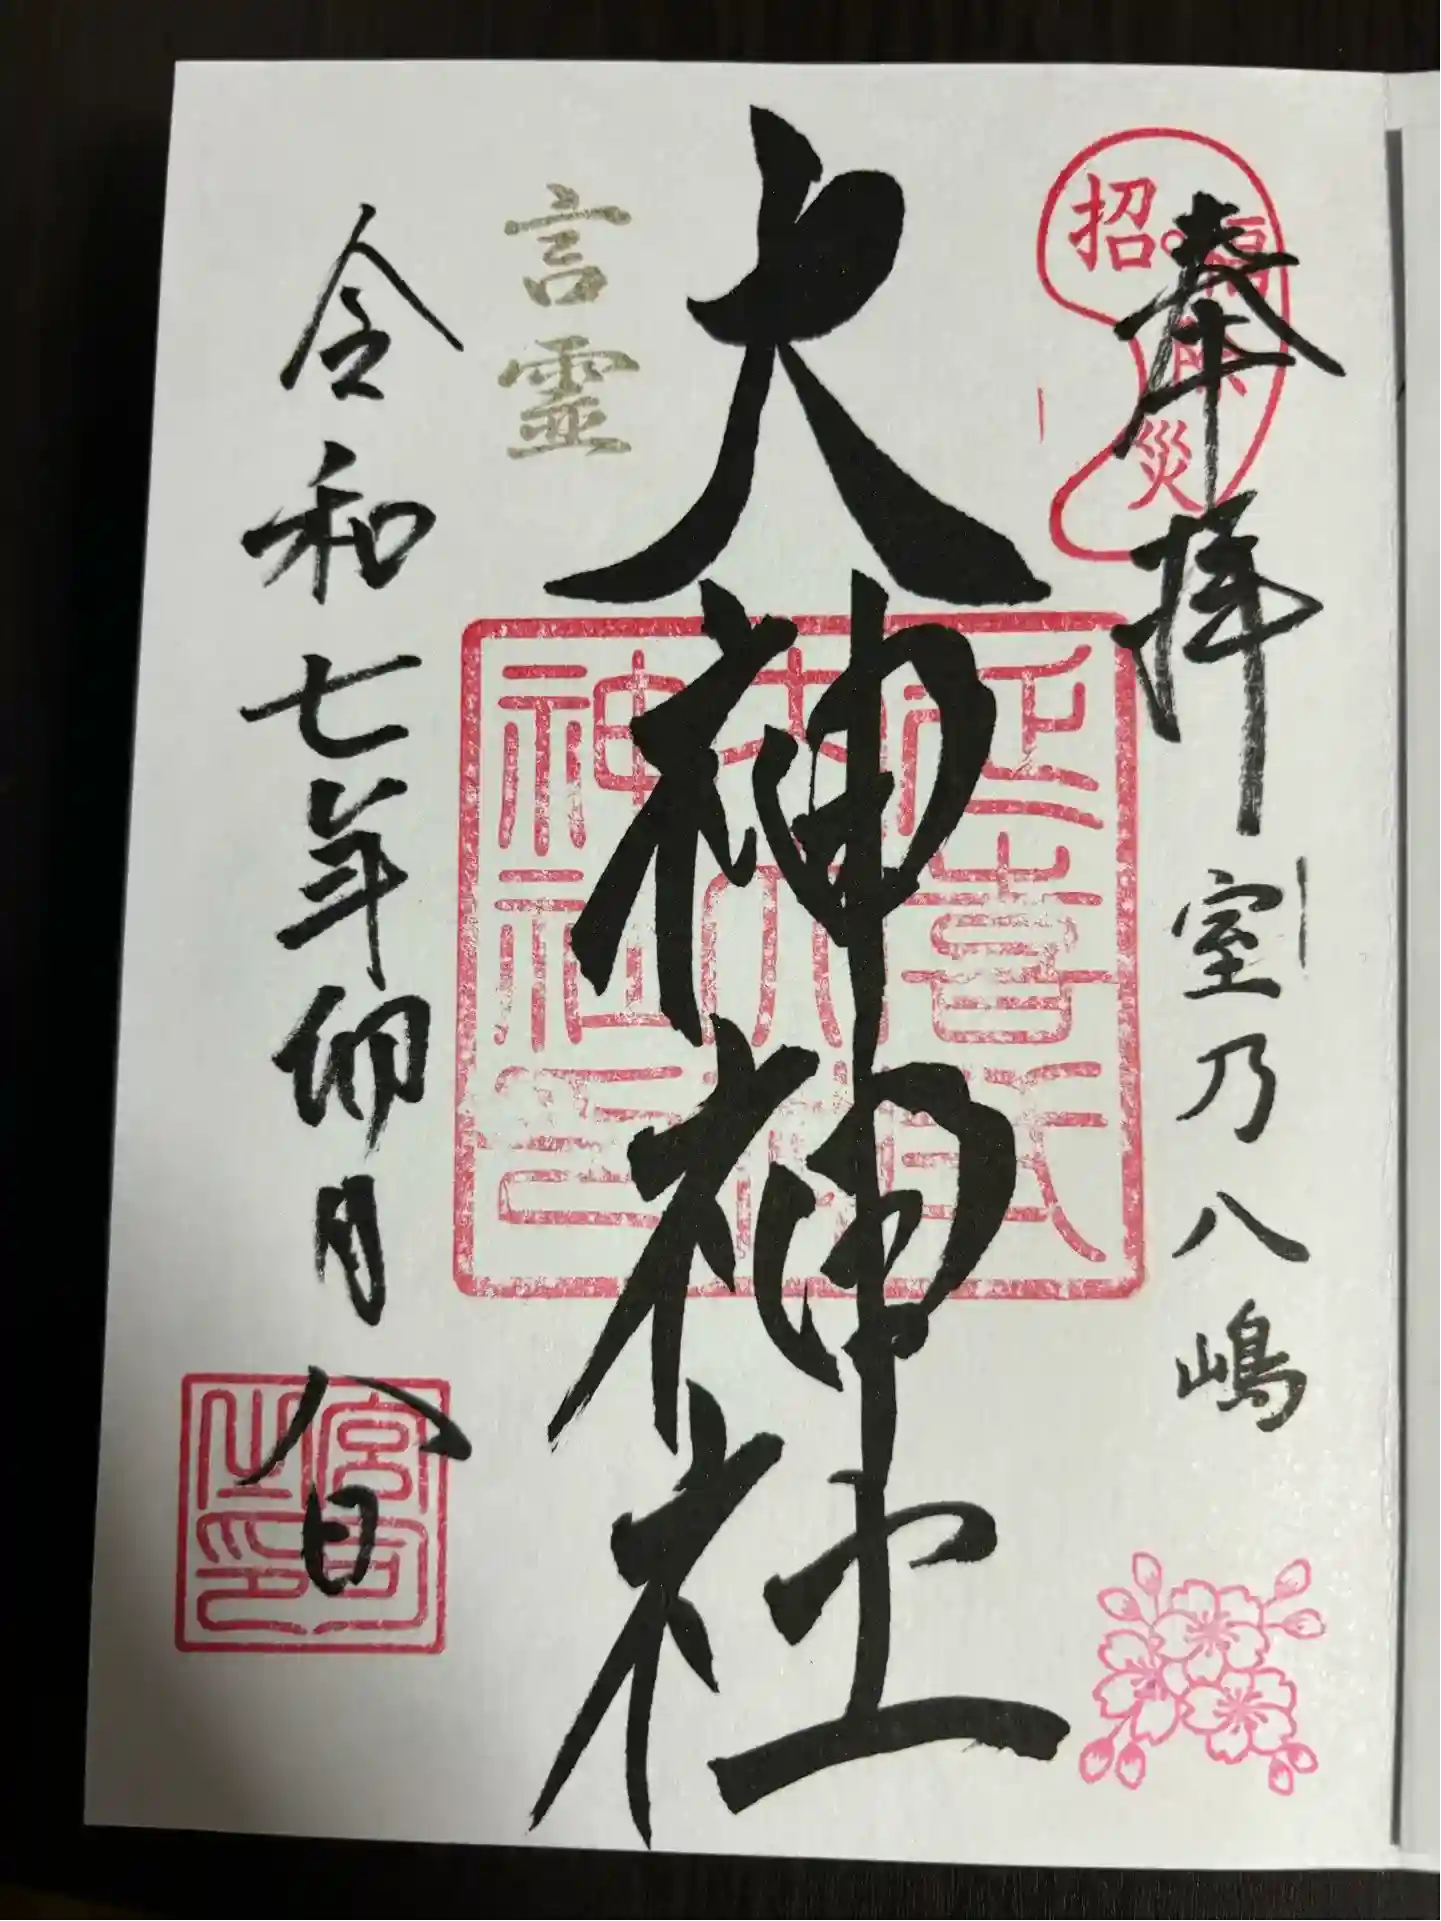 奉拝
招福除災
室乃八嶋
大神神社
延喜式
内大神
神社印
言霊
令和七年卯月八日
宮司
之印